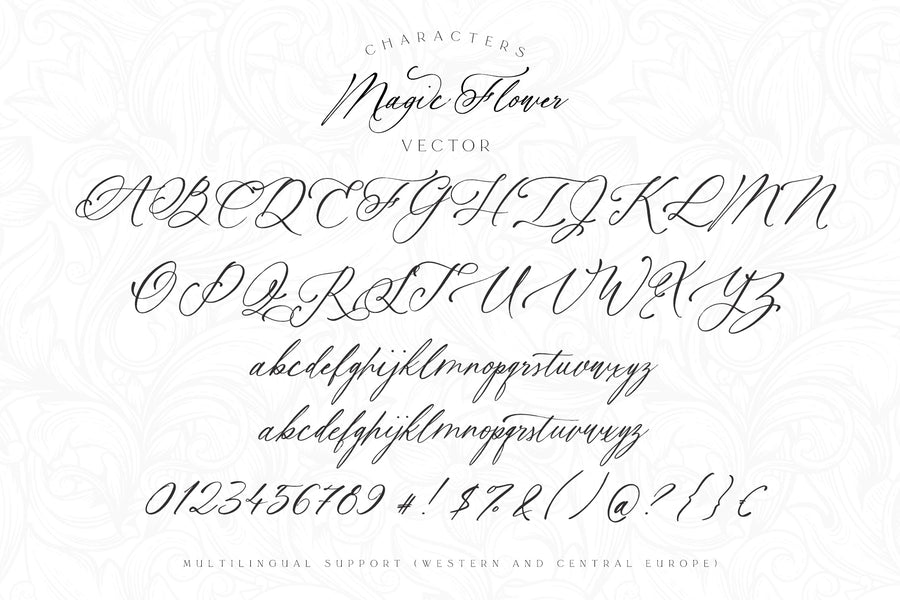 CHARACTERS
Magic Flower
VECTOR
ABCDEFGHIJKLMN
OPQRSTUVWXYZ
abcdefghijklmnopqrstuvwxyz
abcdefghijklmnopqrstuvwxyz
0123456789 #! $ % & ( ) @ ? { } €
MULTILINGUAL SUPPORT (WESTERN AND CENTRAL EUROPE)